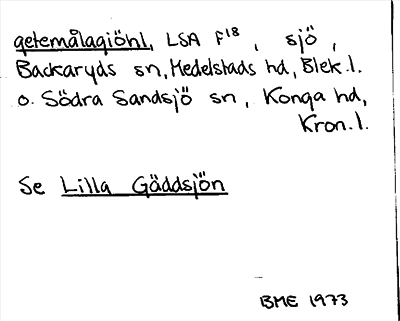 getemålagiöhl, LSA F18, sjö,
Backaryds sn, Medelstads hd, Blek.l.
o. Södra Sandsjö sn, Konga hd,
Kron.l.
Se Lilla Gäddsjön
BME 1973